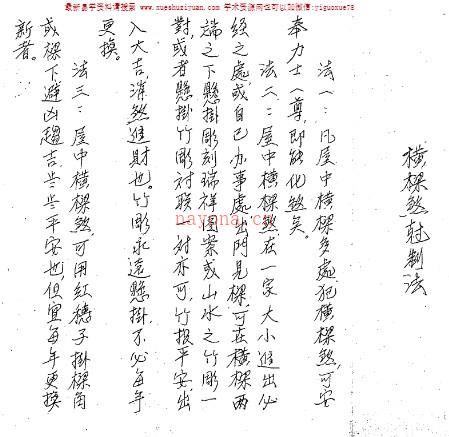 最新易学资料请搜索 www.xueshuziyuan.com 学术资源网也可以加微信:yiguoxue78
橫樑煞尅制法
法一:凡屋中橫樑多處犯橫樑煞,可安
奉力士一尊,即能化煞矣。
法二:屋中橫樑煞在一家大小進出必
經之處或自己办事處出門見樑,可在橫樑兩
端之下懸掛彫刻瑞祥图案或山水之竹彫一
對,或者懸掛竹彫对联一对亦可,竹报平安,出
入大吉,消煞進財也。竹彫永遠懸掛不必每年
更换。
法三:屋中橫樑煞可用紅穗子掛樑角
或樑下避凶趨吉,吉吉平安也,但宜每年更换
新者。
nayona.cn